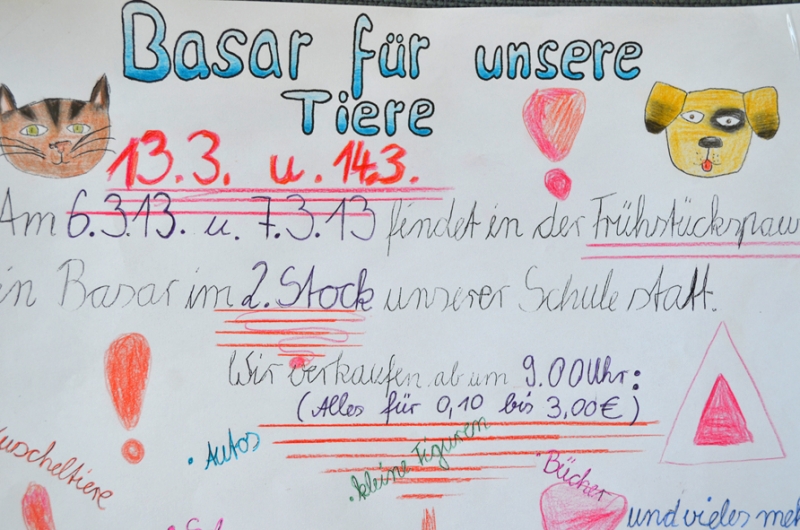 Basar für unsere
Tiere
13.3. u. 14.3.
Am 6.3.13. u. 7.3.13 findet in der Frühstückspau
in Basar im 2. Stock unserer Schule statt.
Wir verkaufen ab um 9.00 Uhr:
(Alles für 0,10 bis 3,00€)
uscheltiere
• Autos
• kleine Figuren
• Bücher
und vieles meh